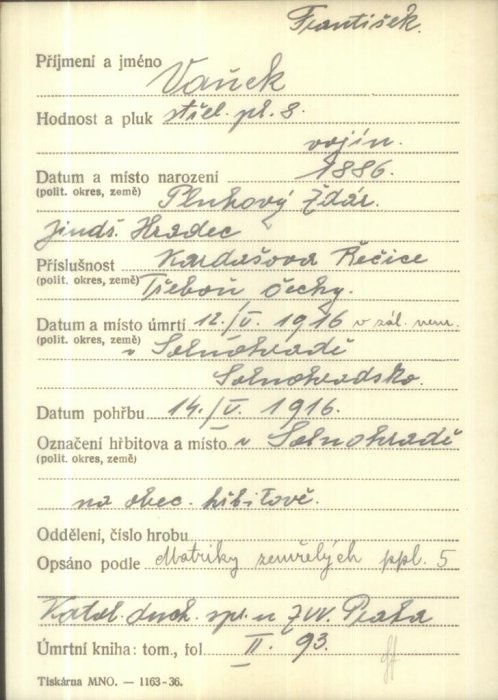 František.
Příjmení a jméno Vaněk
Hodnost a pluk střel. pl. 8.
vojín.
Datum a místo narození 1886.
(polit. okres, země) Pluhový Ždár.
Jindř. Hradec
Příslušnost Kardašova Řečice
(polit. okres, země) Třeboň Čechy.
Datum a místo úmrtí 12./V. 1916 v zál. nem.
(polit. okres, země) v Solnohradě
Solnohradsko.
Datum pohřbu 14./V. 1916.
Označení hřbitova a místo v Solnohradě
(polit. okres, země)
na obec. hřbitově.
Oddělení, číslo hrobu
Opsáno podle Matriky zemřelých ppl. 5
Katol. duch. spr. u ZVV. Praha
Úmrtní kniha: tom., fol II. 93.
Tiskárna MNO. — 1163-36.